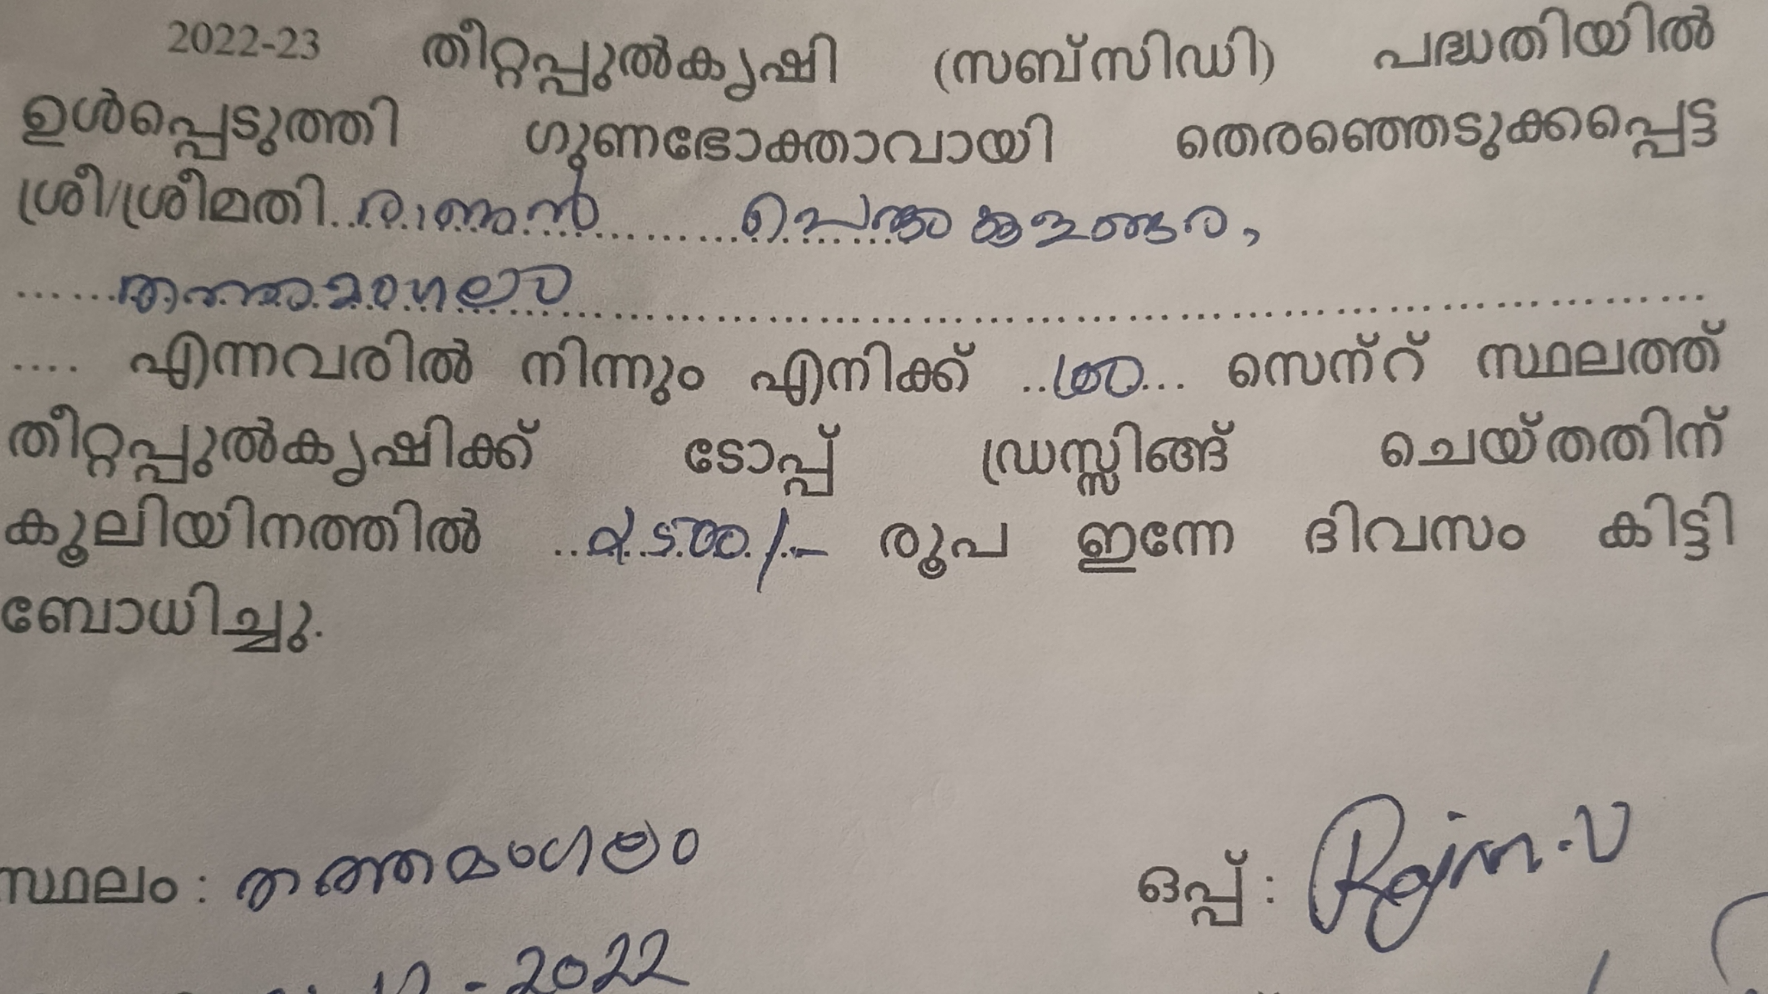 2022-23 തീറ്റപ്പുൽകൃഷി (സബ്സിഡി) പദ്ധതിയിൽ
ഉൾപ്പെടുത്തി ഗുണഭോക്താവായി തെരഞ്ഞെടുക്കപ്പെട്ട
ശ്രീ/ശ്രീമതി..
......തത്തമംഗലം......
.... എന്നവരിൽ നിന്നും എനിക്ക് ..... സെന്റ് സ്ഥലത്ത്
തീറ്റപ്പുൽകൃഷിക്ക് ടോപ്പ് ഡ്രസ്സിങ്ങ് ചെയ്തതിന്
കൂലിയിനത്തിൽ ..... രൂപ ഇന്നേ ദിവസം കിട്ടി
ബോധിച്ചു.
സ്ഥലം : തത്തമംഗലം
ഒപ്പ് :
12-2022